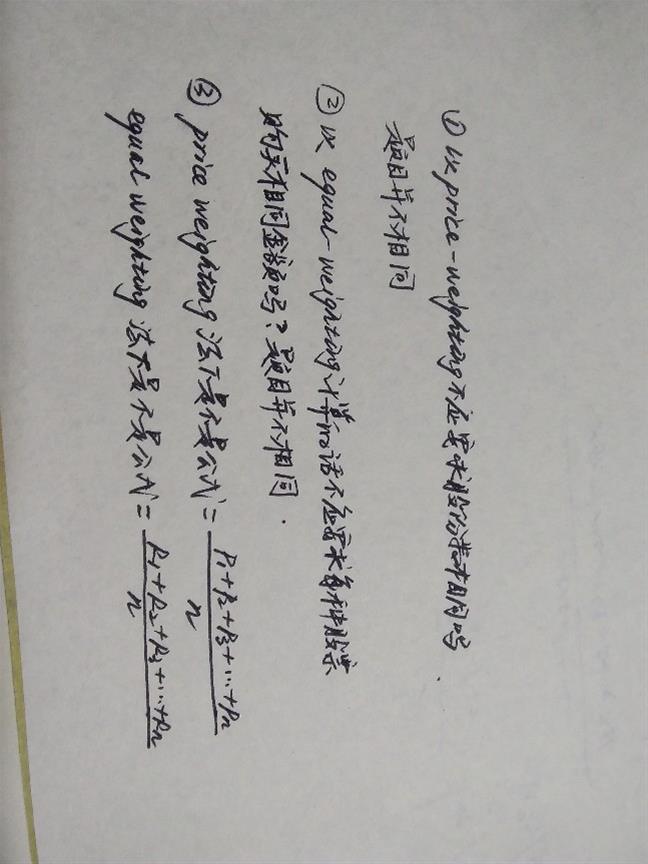 ① 以 price-weighting 不应要求股份数相同吗
题目并不相同
② 以 equal-weighting 计算的话不应要求每种股票
购买相同金额吗?题目并不相同.
③ price weighting 法下是不是公式 = (P₁+P₂+P₃+...+Pₙ)/n
equal weighting 法下是不是公式 = (R₁+R₂+R₃+...+Rₙ)/n